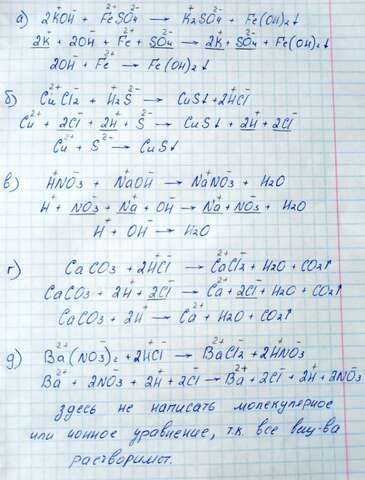 а) 2K⁺OH⁻ + Fe²⁺SO₄²⁻ → K₂⁺SO₄²⁻ + Fe(OH)₂↓
2K⁺ + 2OH⁻ + Fe²⁺ + SO₄²⁻ → 2K⁺ + SO₄²⁻ + Fe(OH)₂↓
2OH⁻ + Fe²⁺ → Fe(OH)₂↓
б) Cu²⁺Cl₂⁻ + H₂⁺S²⁻ → CuS↓ + 2H⁺Cl⁻
Cu²⁺ + 2Cl⁻ + 2H⁺ + S²⁻ → CuS↓ + 2H⁺ + 2Cl⁻
Cu²⁺ + S²⁻ → CuS↓
в) H⁺NO₃⁻ + Na⁺OH⁻ → Na⁺NO₃⁻ + H₂O
H⁺ + NO₃⁻ + Na⁺ + OH⁻ → Na⁺ + NO₃⁻ + H₂O
H⁺ + OH⁻ → H₂O
г) CaCO₃ + 2H⁺Cl⁻ → Ca²⁺Cl₂⁻ + H₂O + CO₂↑
CaCO₃ + 2H⁺ + 2Cl⁻ → Ca²⁺ + 2Cl⁻ + H₂O + CO₂↑
CaCO₃ + 2H⁺ → Ca²⁺ + H₂O + CO₂↑
д) Ba²⁺(NO₃)₂⁻ + 2H⁺Cl⁻ → Ba²⁺Cl₂⁻ + 2H⁺NO₃⁻
Ba²⁺ + 2NO₃⁻ + 2H⁺ + 2Cl⁻ → Ba²⁺ + 2Cl⁻ + 2H⁺ + 2NO₃⁻
здесь не написать молекулярное
или ионное уравнение, т.к. все вещ-ва
растворимы.